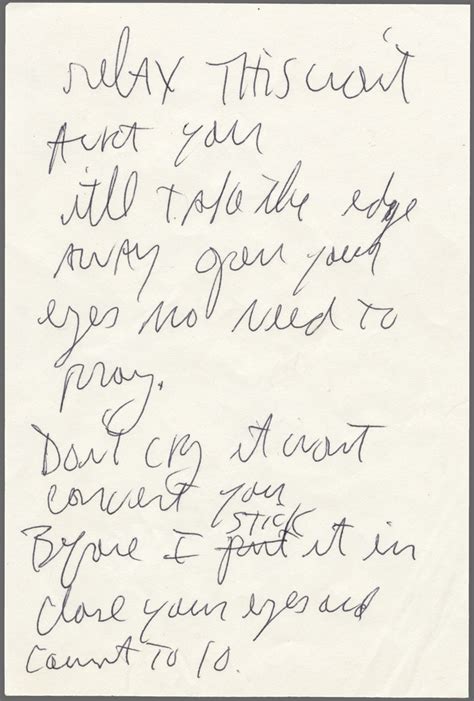 relax This won't
hurt you
it'll take the edge
away open your
eyes no need to
pray.
Don't cry it wont
convert you
Before I put stick it in
close your eyes and
count to 10.